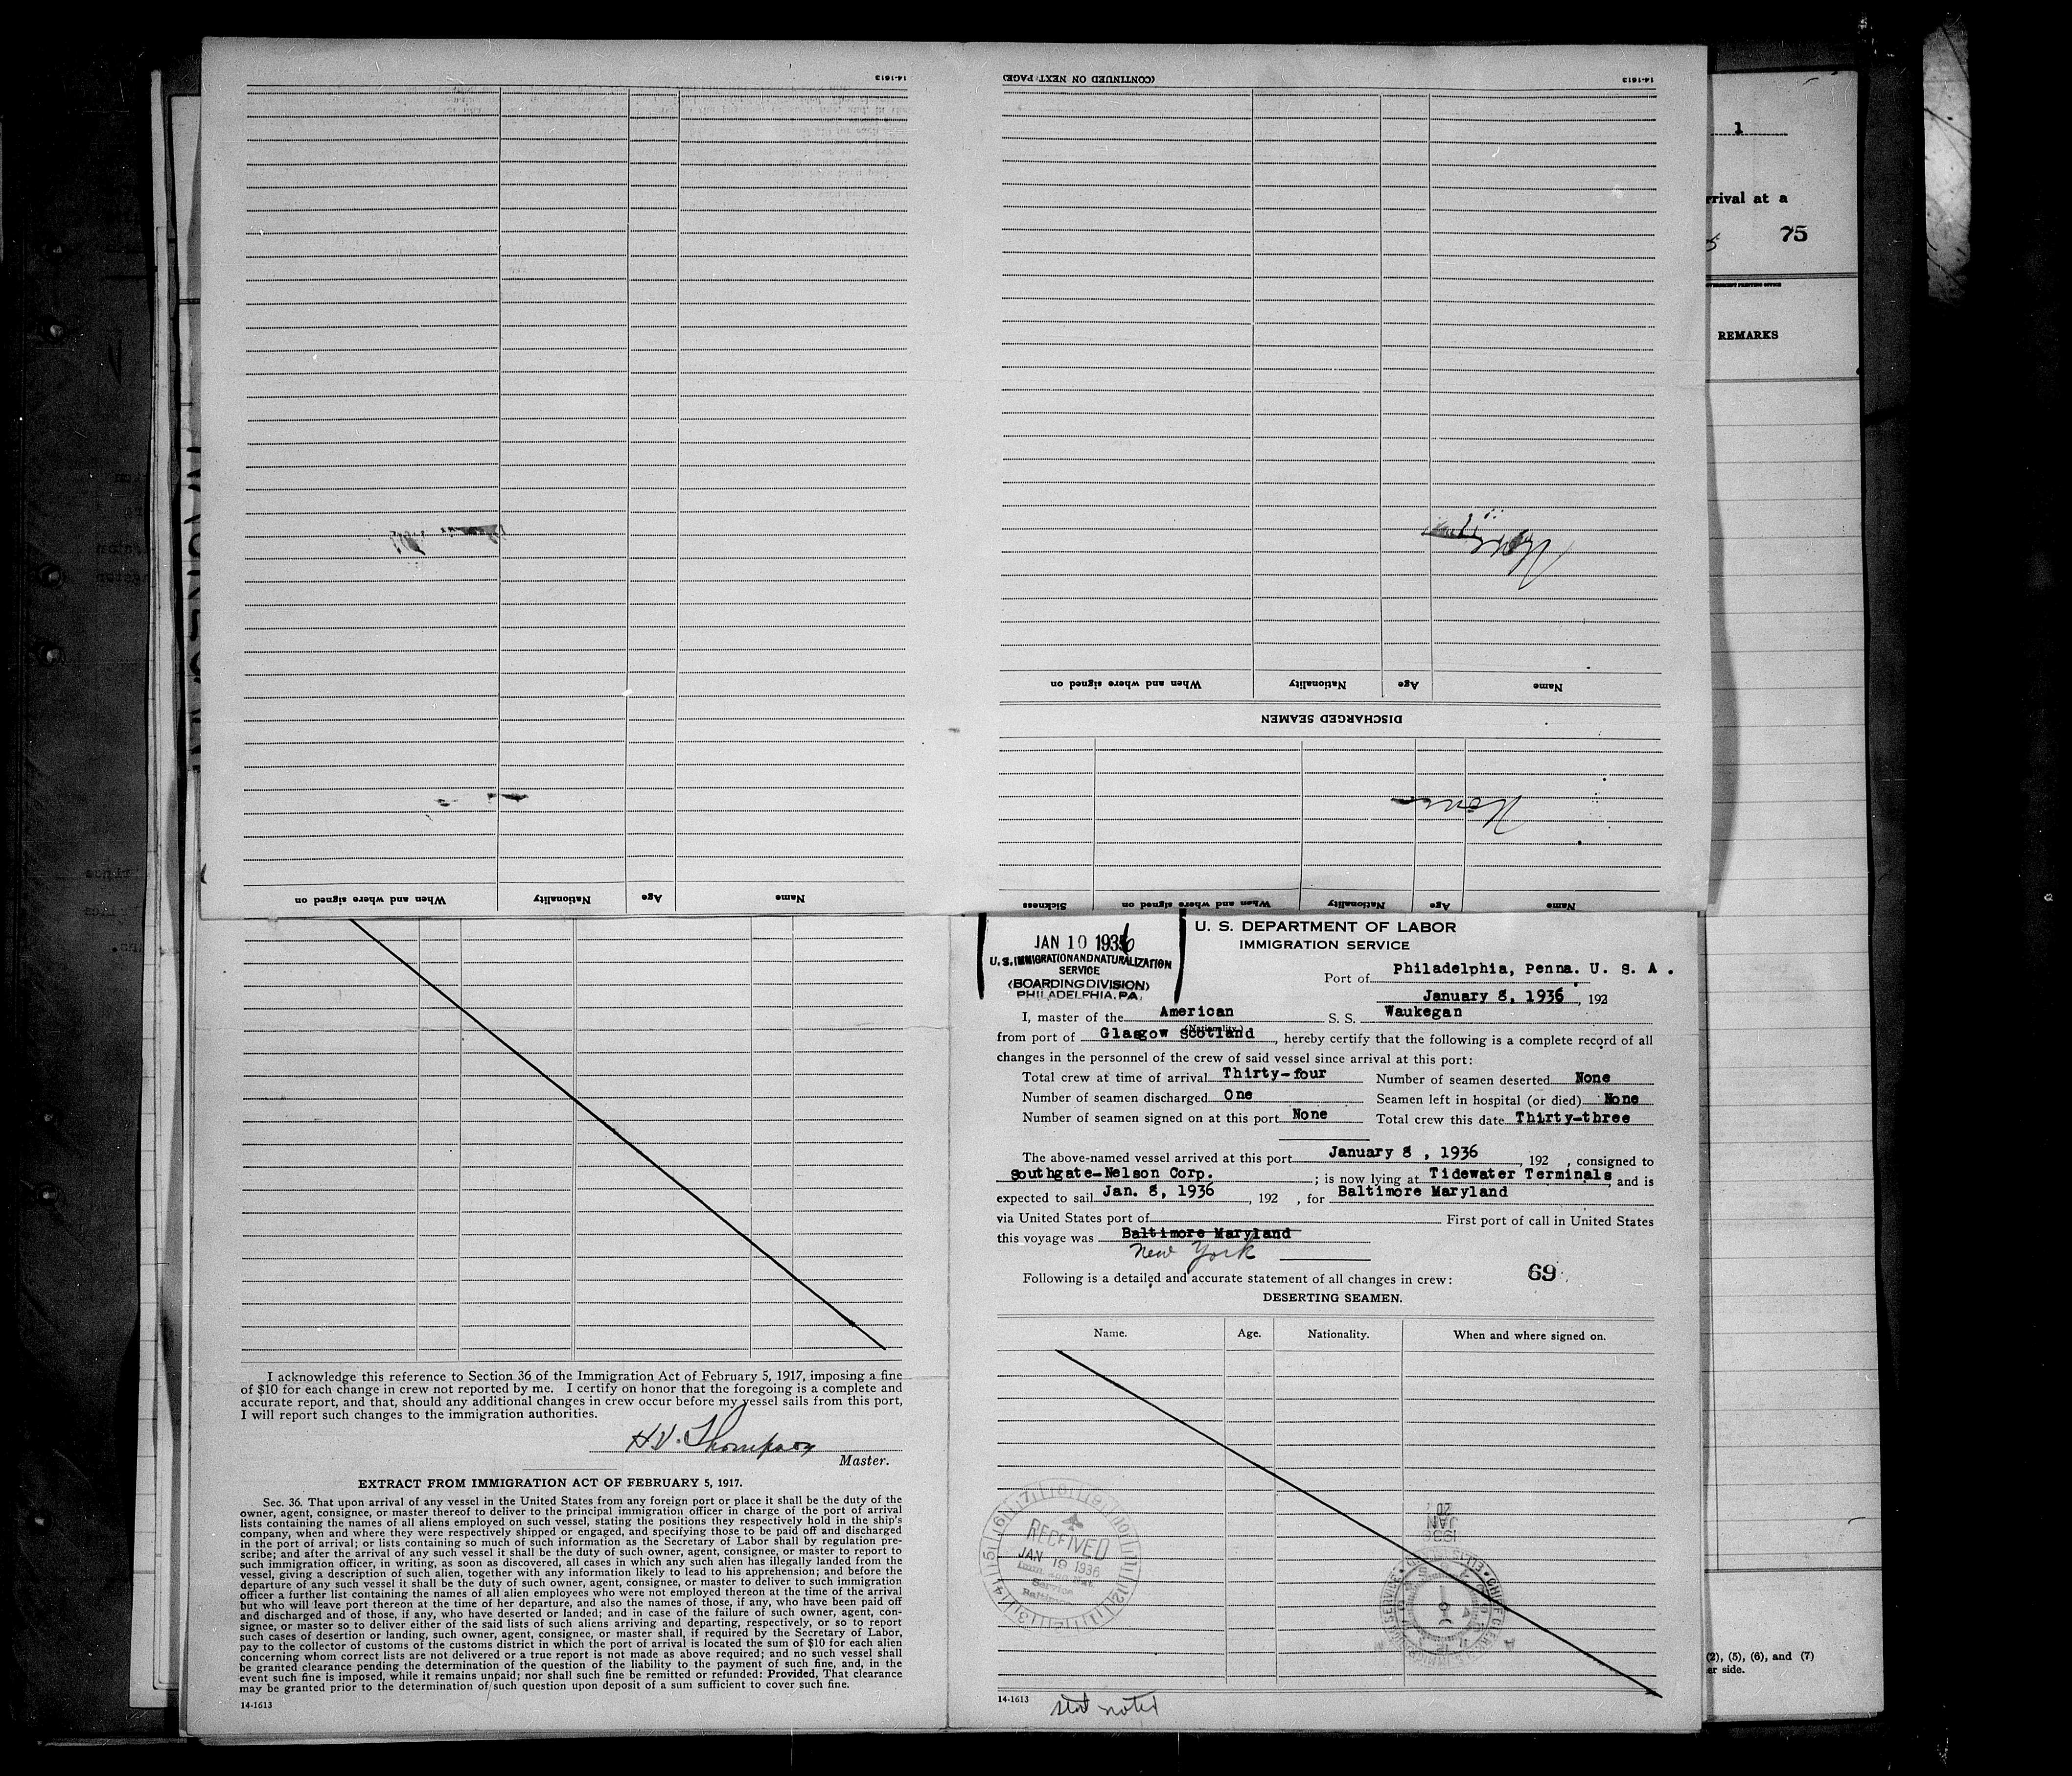 14-1613
(CONTINUED ON NEXT PAGE)
14-1613
When and where signed on
Nationality
Age
Name
DISCHARGED SEAMEN
None
When and where signed on
Nationality
Age
Name
Sickness
When and where signed on
Nationality
Age
Name
1
rrival at a
75
REMARKS
(2), (5), (6), and (7)
er side.
JAN 10 1936
U. S. IMMIGRATION AND NATURALIZATION
SERVICE
(BOARDING DIVISION)
PHILADELPHIA, PA.
U. S. DEPARTMENT OF LABOR
IMMIGRATION SERVICE
Port of Philadelphia, Penna. U. S. A.
January 8, 1936, 192
I, master of the American S. S. Waukegan
(Nationality)
from port of Glasgow Scotland, hereby certify that the following is a complete record of all
changes in the personnel of the crew of said vessel since arrival at this port:
Total crew at time of arrival Thirty-four Number of seamen deserted None
Number of seamen discharged One Seamen left in hospital (or died) None
Number of seamen signed on at this port None Total crew this date Thirty-three
The above-named vessel arrived at this port January 8, 1936, 192 , consigned to
Southgate-Nelson Corp. ; is now lying at Tidewater Terminals and is
expected to sail Jan. 8, 1936, 192 , for Baltimore Maryland
via United States port of First port of call in United States
this voyage was Baltimore Maryland
New York
Following is a detailed and accurate statement of all changes in crew: 69
DESERTING SEAMEN.
Name. Age. Nationality. When and where signed on.
RECEIVED
JAN 10 1936
Imm. and Nat.
Service
1936
JAN
20
14-1613
noted
I acknowledge this reference to Section 36 of the Immigration Act of February 5, 1917, imposing a fine
of $10 for each change in crew not reported by me. I certify on honor that the foregoing is a complete and
accurate report, and that, should any additional changes in crew occur before my vessel sails from this port,
I will report such changes to the immigration authorities.
H.V. Thompson
Master.
EXTRACT FROM IMMIGRATION ACT OF FEBRUARY 5, 1917.
Sec. 36. That upon arrival of any vessel in the United States from any foreign port or place it shall be the duty of the
owner, agent, consignee, or master thereof to deliver to the principal immigration officer in charge of the port of arrival
lists containing the names of all aliens employed on such vessel, stating the positions they respectively hold in the ship's
company, when and where they were respectively shipped or engaged, and specifying those to be paid off and discharged
in the port of arrival; or lists containing so much of such information as the Secretary of Labor shall by regulation pre-
scribe; and after the arrival of any such vessel it shall be the duty of such owner, agent, consignee, or master to report to
such immigration officer, in writing, as soon as discovered, all cases in which any such alien has illegally landed from the
vessel, giving a description of such alien, together with any information likely to lead to his apprehension; and before the
departure of any such vessel it shall be the duty of such owner, agent, consignee, or master to deliver to such immigration
officer a further list containing the names of all alien employees who were not employed thereon at the time of the arrival
but who will leave port thereon at the time of her departure, and also the names of those, if any, who have been paid off
and discharged and of those, if any, who have deserted or landed; and in case of the failure of such owner, agent, con-
signee, or master so to deliver either of the said lists of such aliens arriving and departing, respectively, or so to report
such cases of desertion or landing, such owner, agent, consignee, or master shall, if required by the Secretary of Labor,
pay to the collector of customs of the customs district in which the port of arrival is located the sum of $10 for each alien
concerning whom correct lists are not delivered or a true report is not made as above required; and no such vessel shall
be granted clearance pending the determination of the question of the liability to the payment of such fine, and, in the
event such fine is imposed, while it remains unpaid; nor shall such fine be remitted or refunded: Provided, That clearance
may be granted prior to the determination of such question upon deposit of a sum sufficient to cover such fine.
14-1613